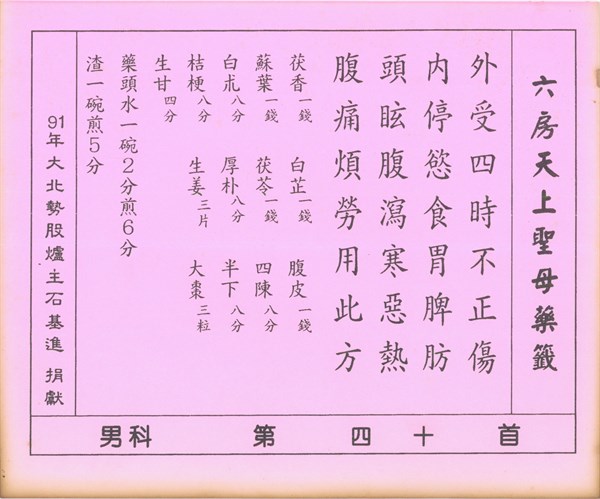 六房天上聖母藥籤
外受四時不正傷
內停慾食胃脾肪
頭眩腹瀉寒惡熱
腹痛煩勞用此方
茯香一錢 白芷一錢 腹皮一錢
蘇葉一錢 茯苓一錢 四陳八分
白朮八分 厚朴八分 半下八分
桔梗八分 生姜三片 大棗三粒
生甘四分
藥頭水一碗2分煎6分
渣一碗煎5分
91年大北勢股爐主石基進 捐獻
男科 第 四 十 首